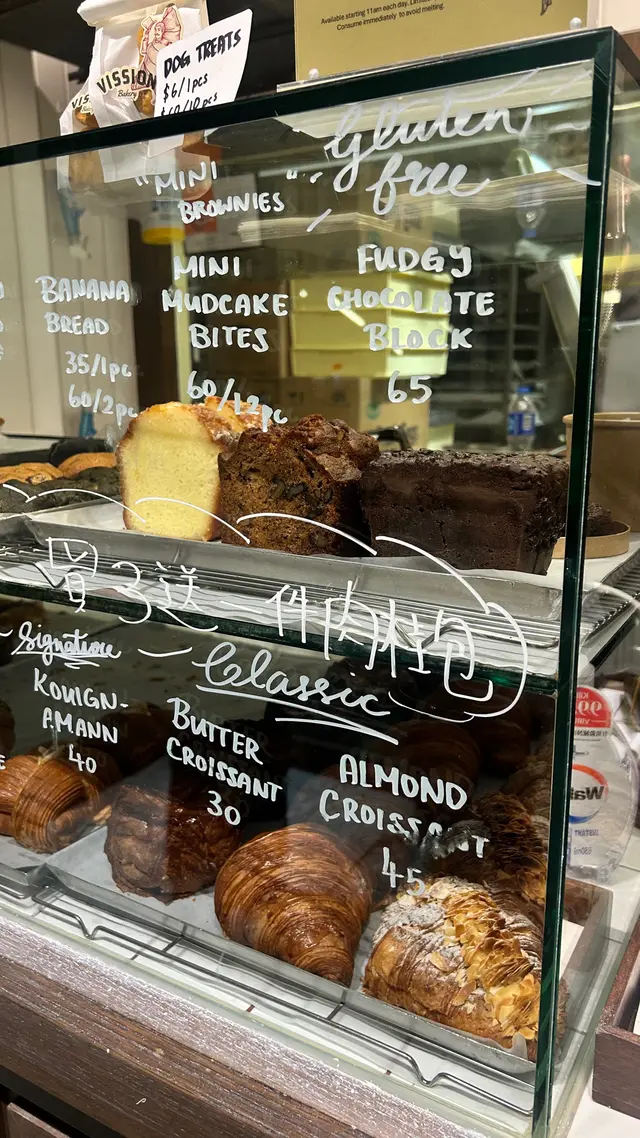 Available starting 11am each day.
Consume immediately to avoid melting.
VISSION
Bakery
DOG TREATS
$6/1pcs
$60/12pcs
Gluten
free
"MINI
BROWNIES"
BANANA
BREAD
35/1pc
60/2pc
MINI
MUDCAKE
BITES
60/12pc
FUDGY
CHOCOLATE
BLOCK
65
買3送一件肉桂包
Signature
Classic
KOUIGN-
AMANN
40
BUTTER
CROISSANT
30
ALMOND
CROISSANT
45